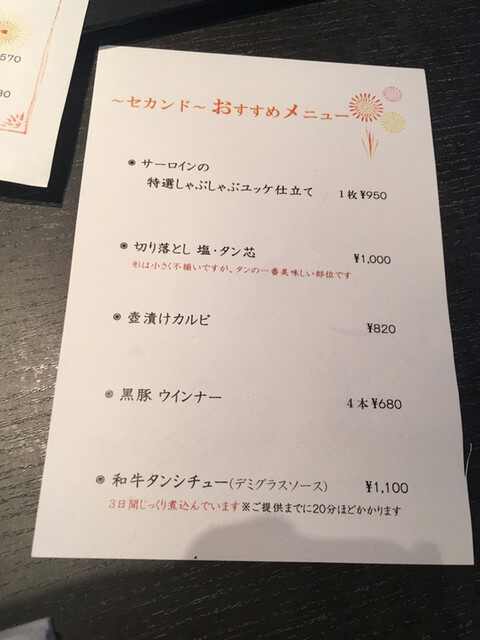 570
80
～セカンド～ おすすめメニュー
◉ サーロインの
特選しゃぶしゃぶユッケ仕立て 1枚¥950
◉ 切り落とし 塩・タン芯 ¥1,000
形は小さく不揃いですが、タンの一番美味しい部位です
◉ 壺漬けカルビ ¥820
◉ 黒豚 ウインナー 4本¥680
◉ 和牛タンシチュー(デミグラスソース) ¥1,100
3日間じっくり煮込んでいます※ご提供までに20分ほどかかります